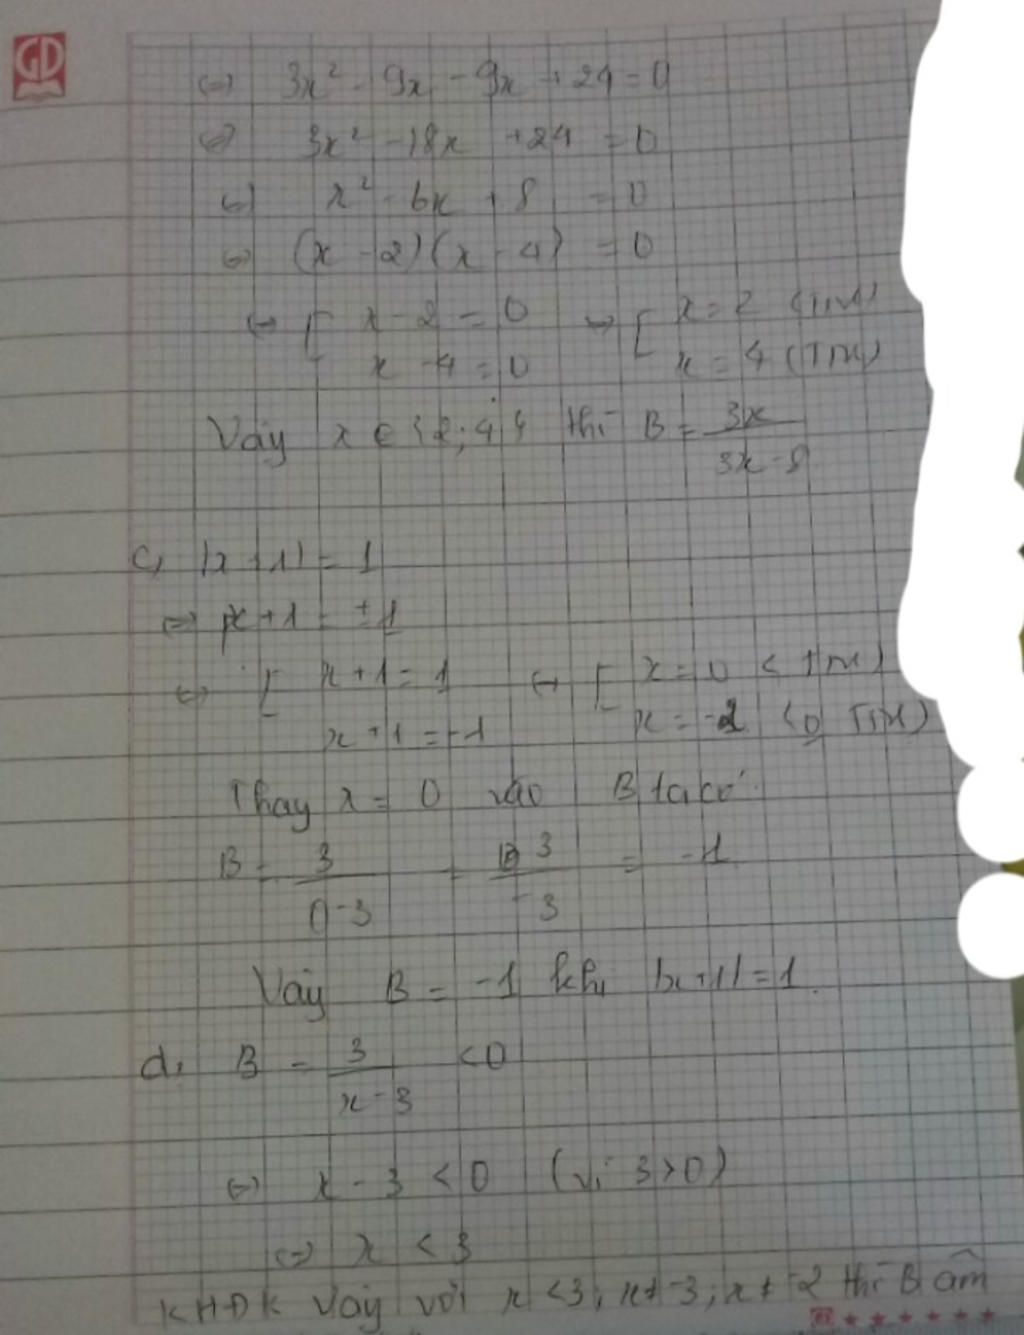 GD
<=> 3x² - 9x - 9x + 24 = 0
<=> 3x² - 18x + 24 = 0
<=> x² - 6x + 8 = 0
<=> (x - 2)(x - 4) = 0
<=> [ x - 2 = 0 <=> [ x = 2 (TM)
x - 4 = 0 x = 4 (TM)
Vậy x ∈ {2; 4} thì B = 3x / 3x - 8
c, |x + 1| = 1
<=> x + 1 = ±1
<=> [ x + 1 = 1 <=> [ x = 0 (TM)
x + 1 = -1 x = -2 (0 TM)
Thay x = 0 vào B ta có:
B = 3 / 0 - 3 = 3 / -3 = -1
Vậy B = -1 khi |x + 1| = 1.
d, B = 3 / x - 3 < 0
<=> x - 3 < 0 (vì 3 > 0)
<=> x < 3
KHĐK Vậy với x < 3; x ≠ -3; x ≠ -2 thì B âm